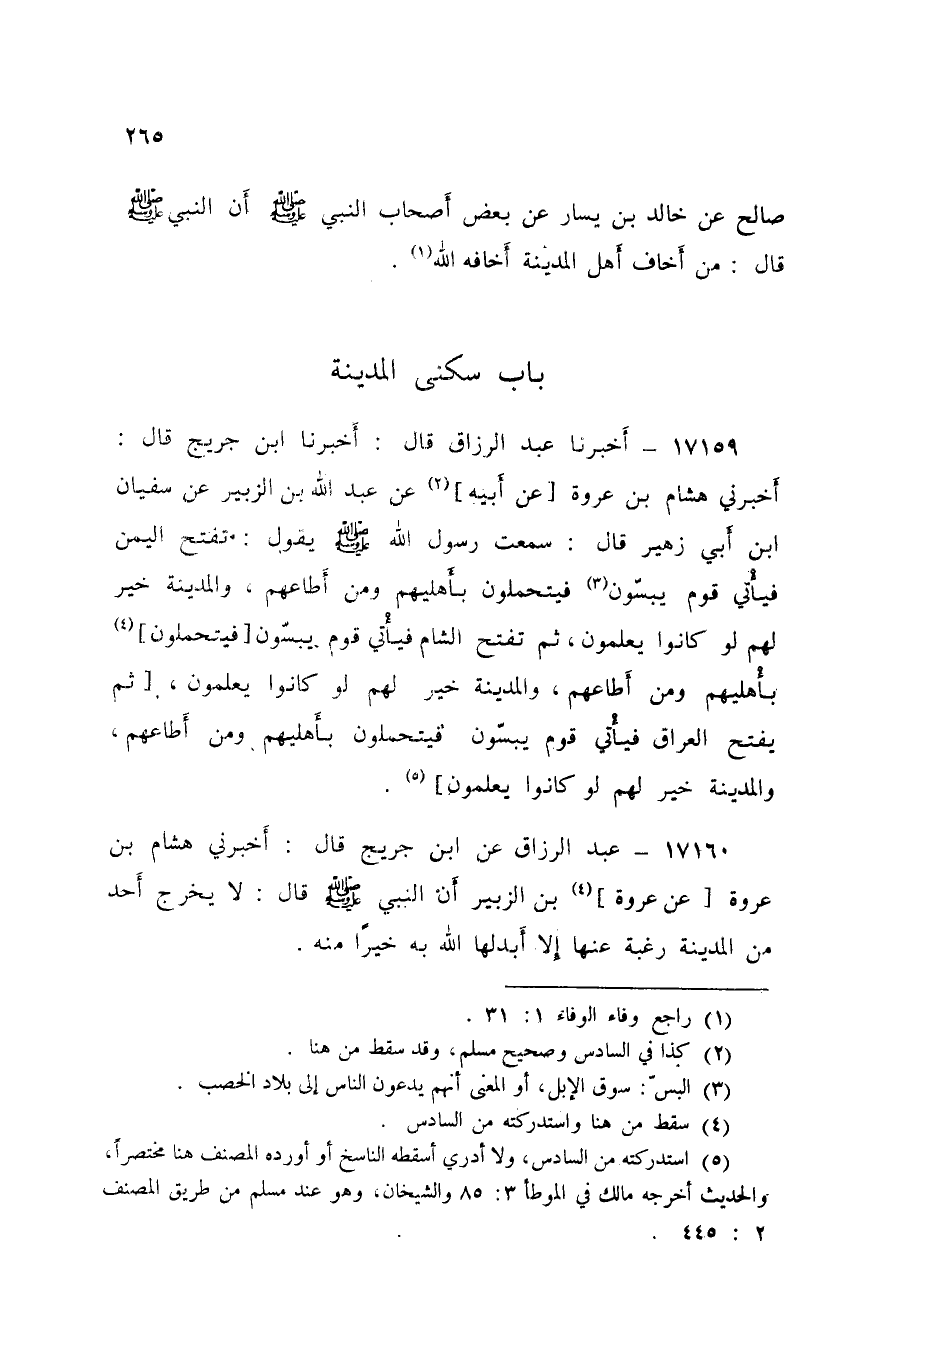 ٢٦٥
صالح عن خالد بن يسار عن بعض أَصحاب النبي ﷺ أَن النبي ﷺ
قال : من أَخاف أَهل المدينة أَخافه الله(١) .
باب سكنى المدينة
١٧١٥٩ – أَخبرنا عبد الرزاق قال : أَخبرنا ابن جريج قال :
أَخبرني هشام بن عروة [ عن أَبيه ](٢) عن عبد الله بن الزبير عن سفيان
ابن أَبي زهير قال : سمعت رسول الله ﷺ يقول : تفتح اليمن
فيأْتي قوم يبسّون(٣) فيتحملون بأَهليهم ومن أَطاعهم ، والمدينة خير
لهم لو كانوا يعلمون ، ثم تفتح الشام فيأْتي قوم يبسّون [ فيتحملون ](٤)
بأَهليهم ومن أَطاعهم ، والمدينة خير لهم لو كانوا يعلمون ، [ ثم
يفتح العراق فيأْتي قوم يبسّون فيتحملون بأَهليهم ومن أَطاعهم ،
والمدينة خير لهم لو كانوا يعلمون ](٥) .
١٧١٦٠ – عبد الرزاق عن ابن جريج قال : أَخبرني هشام بن
عروة [ عن عروة ](٤) بن الزبير أَن النبي ﷺ قال : لا يخرج أَحد
من المدينة رغبة عنها إلا أَبدلها الله به خيرًا منه .
(١) راجع وفاء الوفاء ١ : ٣١ .
(٢) كذا في السادس وصحيح مسلم، وقد سقط من هنا .
(٣) البسّ : سوق الإبل، أو المعنى أنهم يدعون الناس إلى بلاد الخصب .
(٤) سقط من هنا واستدركته من السادس .
(٥) استدركته من السادس، ولا أدري أسقطه الناسخ أو أورده المصنف هنا مختصراً،
والحديث أخرجه مالك في الموطأ ٣ : ٨٥ والشيخان، وهو عند مسلم من طريق المصنف
٢ : ٤٤٥ .